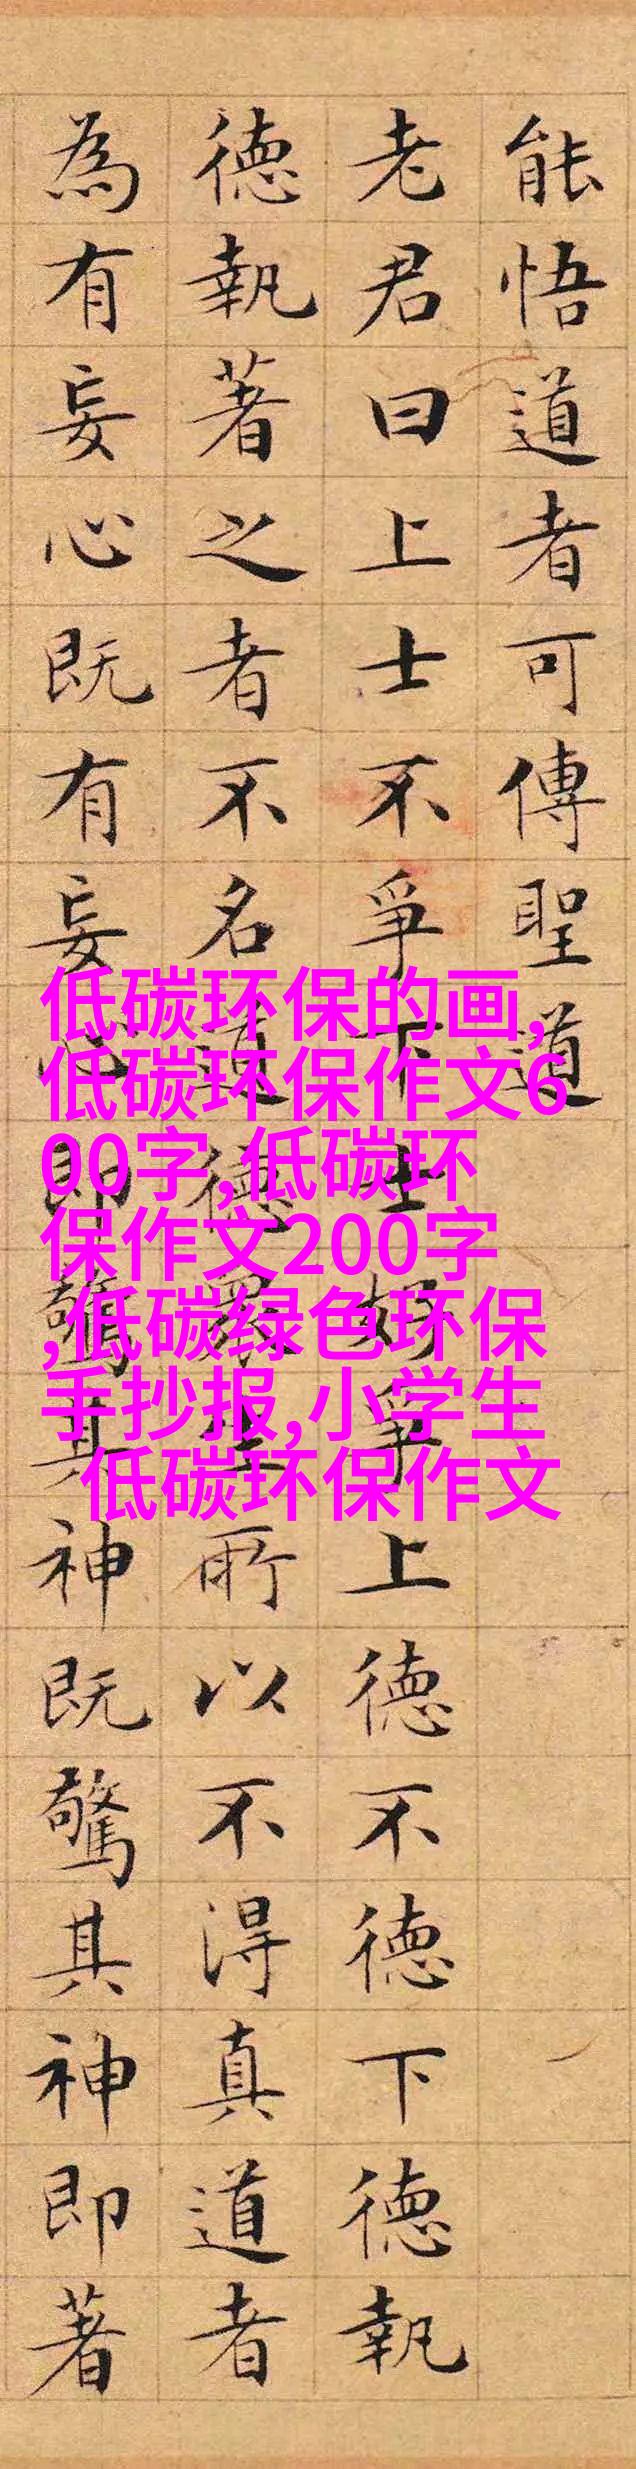 能悟道者可傳聖道
老君曰上士不爭下士好爭上德不德下德執
德執著之者不名道德眾生所以不得真道者
為有妄心既有妄心即驚其神既驚其神即著
低碳环保的画,
低碳环保作文6
00字,低碳环
保作文200字
,低碳绿色环保
手抄报,小学生
低碳环保作文